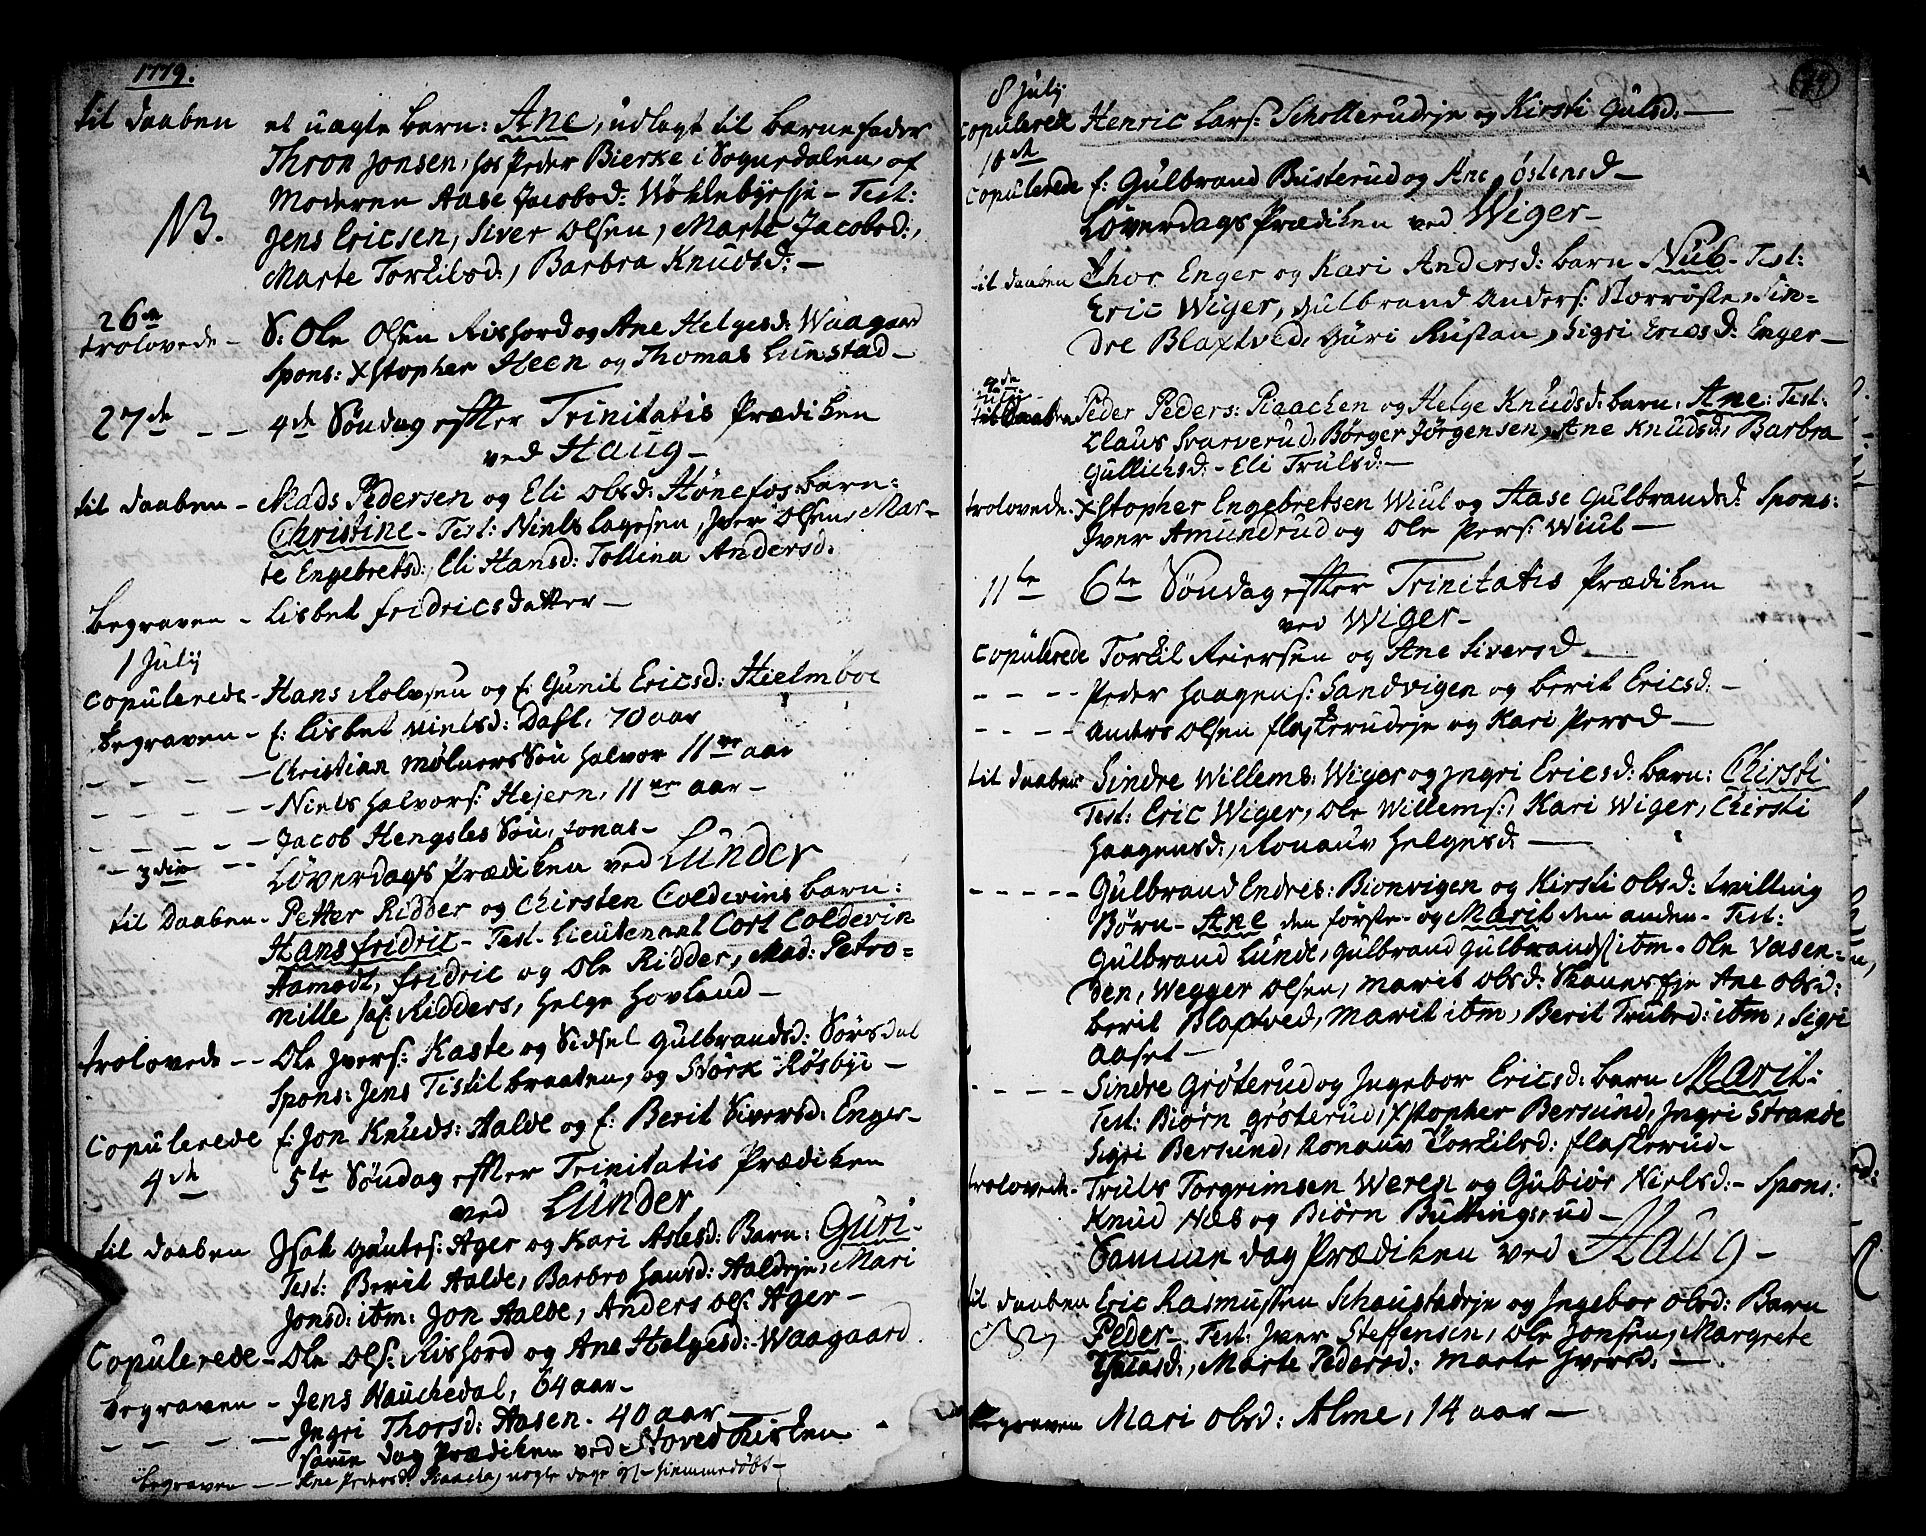 1779.
til daaben et uægte barn: Ane, udlagt til barnefader
Thron Jonsen, hos Peder Bierke i Sognedalen, af
Moderen Aase Jacobsd: Wøklebyeje - Test:
NB. Jens Ericsen, Siver Olsen, Marte Jacobsd:,
Marte Torkilsd:, Barbra Knudsd: -
26de
trolovede - S: Ole Olsen Risfiord og Ane Helgesd: Waagaard
Spons: Xstopher Heen og Thomas Lunstad -
27de - - 4de Søndag effter Trinitatis Prædiken
ved Haug -
til daaben - Mads Pedersen og Eli Olsd: Hønefos barn:
Christine - Test: Niels Lagesen, Iver Olsen, Mar-
te Engebretsd: Eli Hansd: Tollina Andersd.
begraven - Lisbet fridricsdatter -
1 July
Copulerede - Hans Rolvsen og f: Gunil Ericsd: Hielmboe
begraven - f: Lisbet Nielsd: Dahl. 70 aar
- - - - Christian Mølners Søn Halvor 11 aar
- - - - Niels Halvors: Hejern, 11 aar -
- - - - Jacob Hengsles Søn, Jonas -
- 3die - - Løverdags Prædiken ved Lunder
til Daaben - Petter Ridder og Chirsten Coldevins barn:
Hans fridric - Test - Lieutenant Cort Coldevin
Aamodt, fridric og Ole Ridder, Mad: Petro-
nille sal: Ridders, Helge Hovland -
trolovede - - Ole Ivers: Kaste og Sidsel Gulbrandsd: Sørsdal
Spons: Jens Tistilbraaten, og Størk Røsbye -
Copulerede f: Jon Knuds: Aalde og f: Berit Siversd: Enger -
4de 5te Søndag effter Trinitatis Prædiken
ved Lunder
til daaben Isak Guutes: Ager og Kari Aslesd: Barn: Guri -
Test: Berit Aalde, Barbro Hansd: Aaldeje, Mari
Jonsd: itm: Jon Aalde, Anders Ols: Ager -
Copulerede - Ole Ols: Risfiord og Ane Helgesd: Waagaard.
begraven - Jens Hauchedal, 64 aar -
- - - - Ingri Thorsd: Aasen - 40 aar -
samme dag Prædiken ved Hovedkirken
begraven - - Ane Pedersd: Piaaka, nogle dage gl: hiemmedøbt -
8 July
Copulerede Henric Lars: Schollerudeje og Kirsti Gulsd: -
10de
Copulerede f: Gulbrand Busterud og Ane Østensd -
Løverdags Prædiken ved Wiger -
til daaben Thor Enger og Kari Andersd: barn Nub - Test:
Eric Wiger, Gulbrand Anders: Storrøste, Sin-
dre Blaxtved, Guri Rustan, Sigri Ericsd: Enger -
til daaben Peder Peders: Piaachen og Helge Knudsd: barn: Ane: Test:
Claus Svarverud, Børger Jørgensen, Ane Knudsd: Barbra
Gullichsd: - Eli Trulsd: -
trolovede - Xstopher Engebretsen Wiul og Aase Gulbrandsd: Spons:
Iver Amundrud og Ole Pers: Wiul -
11te 6te Søndag effter Trinitatis Prædiken
ved Wiger -
Copulerede Torkil Reiersen og Ane Siversd -
- - - - Peder Haagens: Sandvigen og Berit Ericsd: -
- - - - Anders Olsen flaskerudeje og Kari Persd -
til daaben Sindre Willems: Wiger og Ingri Ericsd: barn: Chirsti
Test: Eric Wiger, Ole Willems:, Kari Wiger, Chirsti
Haagensd:, Ronauv Helgesd: -
- - - - - Gulbrand Endres: Bionvigen og Kirsti Olsd: tvilling
Børn - Ane den første - og Marit den anden - Test:
Gulbrand Lunde, Gulbrand Gulbrands: itm - Ole Vasen-
den, Wegger Olsen, Marit Olsd: Ane Olsd:
Berit Blaxtved, Marit itm, Berit Trulsd: itm, Sigri
Aaset -
- - - Sindre Grøterud og Ingebor Ericsd: barn Marit:
Test: Biørn Grøterud, Xstopher Bersund, Ingri Strande
Sigri Bersund, Ronauv Torkilsd: flaskerud -
trolovede - Truls Torgrimsen Weren og Gubiør Nielsd: - Spons:
Knud Næs og Biørn Buttingsrud -
Samme dag Prædiken ved Haug -
til daaben Eric Rasmussen Schaustadeje og Ingebor Olsd: Barn
Peder - Test: Iver Steffensen, Ole Jonsen, Margrete
Marte Pedersd: Marte Iversd: -
begraven Mari Olsd: Alme, 14 aar -